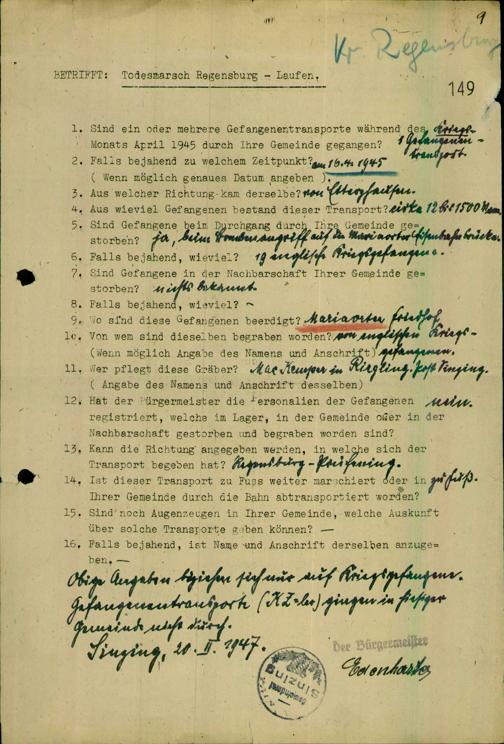 9
Kr. Regensburg
BETRIFFT: Todesmarsch Regensburg - Laufen.
149
1. Sind ein oder mehrere Gefangenentransporte während des Kriegs-
Monats April 1945 durch Ihre Gemeinde gegangen? 1 Gefangenen-
transport.
2. Falls bejahend zu welchem Zeitpunkt? am 16.4. 1945
( Wenn möglich genaues Datum angeben ).
3. Aus welcher Richtung kam derselbe? von Etterzhausen.
4. Aus wieviel Gefangenen bestand dieser Transport? zirka 12 bis 1500 Mann
5. Sind Gefangene beim Durchgang durch Ihre Gemeinde ge=
storben? ja, beim Bombenangriff auf die Mariaorter Eisenbahnbrücke.
6. Falls bejahend, wieviel? 19 englisch Kriegsgefangene.
7. Sind Gefangene in der Nachbarschaft Ihrer Gemeinde ge=
storben? nichts bekannt
8. Falls bejahend, wieviel? -
9. Wo sind diese Gefangenen beerdigt? Mariaorter Friedhof
10. Von wem sind dieselben begraben worden? von englischen Kriegs-
(Wenn möglich Angabe des Namens und Anschrift) gefangenen.
11. Wer pflegt diese Gräber? in Riegling, Post Sinzing.
( Angabe des Namens und Anschrift desselben)
12. Hat der Bürgermeister die Personalien der Gefangenen nein.
registriert, welche im Lager, in der Gemeinde oder in der
Nachbarschaft gestorben und begraben worden sind?
13. Kann die Richtung angegeben werden, in welche sich der
Transport begeben hat? Regensburg-Prüfening.
14. Ist dieser Transport zu Fuss weiter marschiert oder in zu Fuß.
Ihrer Gemeinde durch die Bahn abtransportiert worden?
15. Sind noch Augenzeugen in Ihrer Gemeinde, welche Auskunft
über solche Transporte geben können? —
16. Falls bejahend, ist Name und Anschrift derselben anzuge=
ben. —
Obige Angaben beziehen sich nur auf Kriegsgefangene.
Gefangenentransporte (KZ=ler) gingen in hiesiger
Gemeinde nicht durch.
Sinzing, 20. II. 1947.
Der Bürgermeister
Sinzing